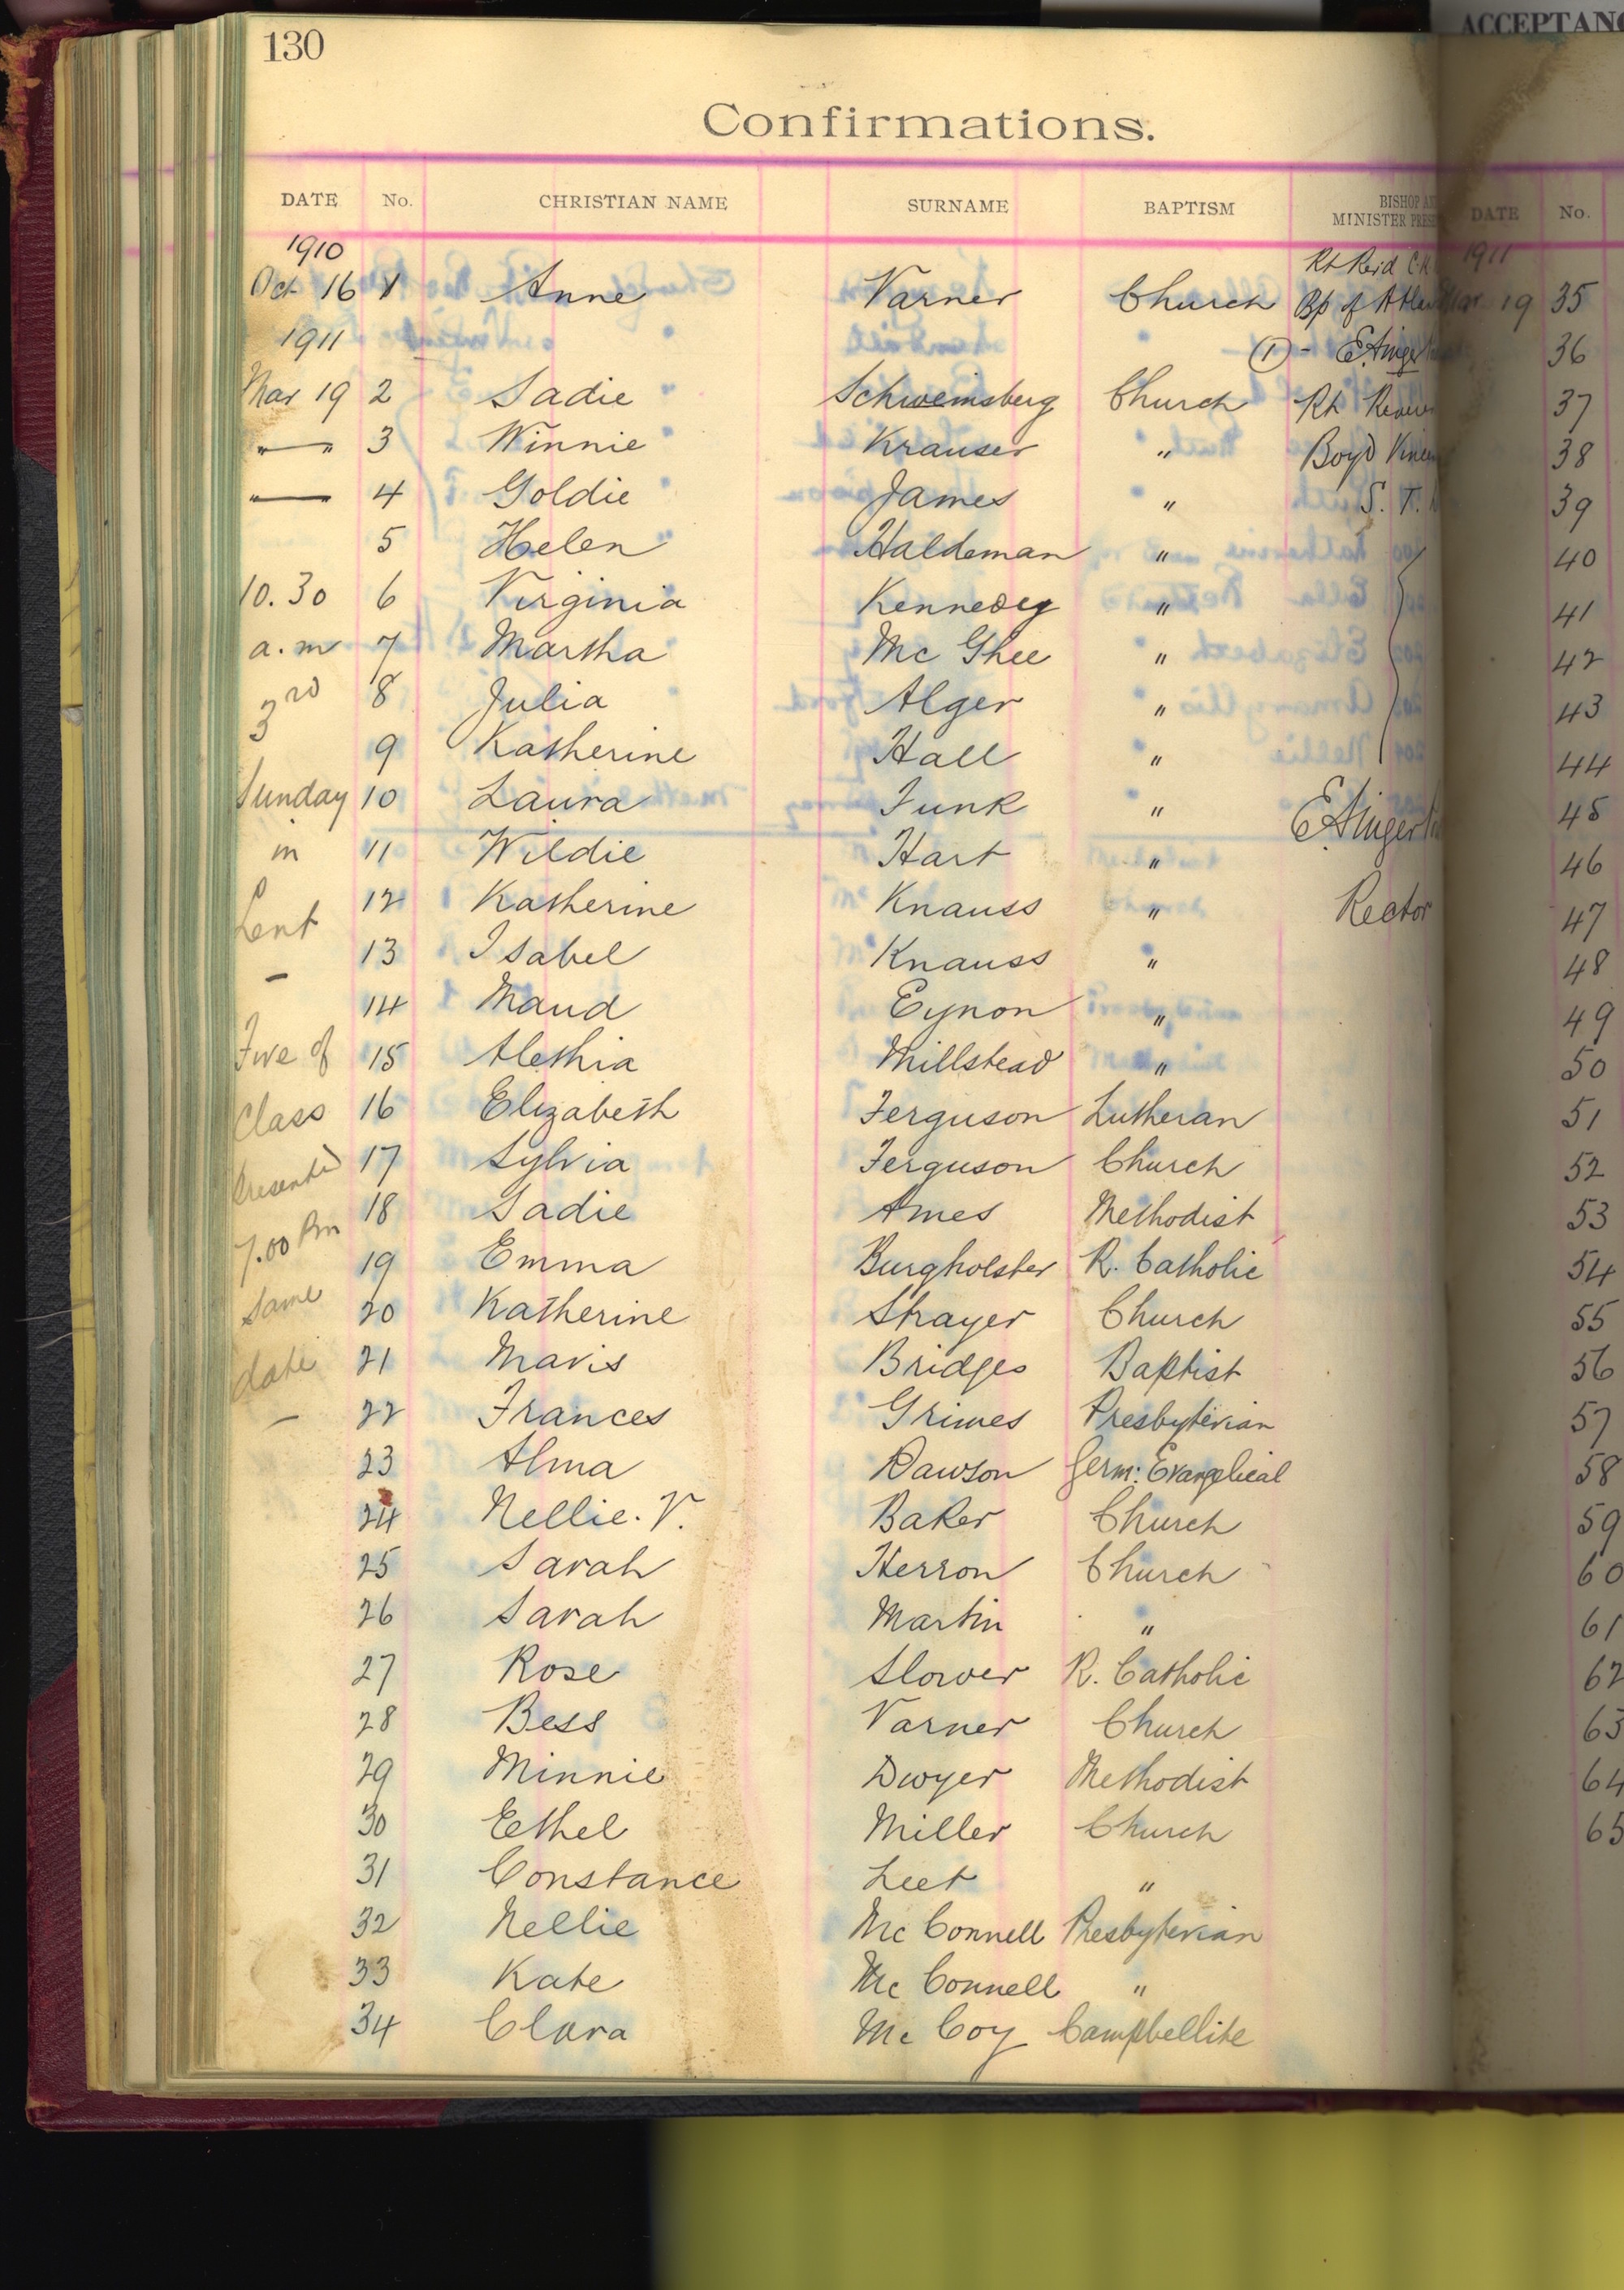 130
ACCEPTANC
Confirmations.
DATE No. CHRISTIAN NAME SURNAME BAPTISM BISHOP MINISTER DATE No.
1910 1911
Oct 16 1 Anne Varner Church Bp of 19 35
1911 ① - 36
Mar 19 2 Sadie Schweinsberg Church Rt 37
" 3 Winnie Krauser " Boyd 38
" 4 Goldie James " S. T. 39
5 Helen Haldeman " 40
10.30 6 Virginia Kennedy " 41
a.m 7 Martha Mc Ghee " 42
3rd 8 Julia Alger " 43
9 Katherine Hall " 44
Sunday 10 Laura Funk " 45
in 11 Wildie Hart " 46
Lent 12 Katherine Knauss " Rector 47
- 13 Isabel Knauss " 48
14 Maud Eynon " 49
Five of 15 Alethia Millstead " 50
Class 16 Elizabeth Ferguson Lutheran 51
Presented 17 Sylvia Ferguson Church 52
7.00 Pm 18 Sadie Ames Methodist 53
same 19 Emma Burgholster R. Catholic 54
20 Katherine Strayer Church 55
date 21 Mavis Bridges Baptist 56
- 22 Frances Grimes Presbyterian 57
23 Alma Dawson Germ: Evangelical 58
24 Nellie. V. Baker Church 59
25 Sarah Herron Church 60
26 Sarah Martin " 61
27 Rose Slower R. Catholic 62
28 Bess Varner Church 63
29 Minnie Dwyer Methodist 64
30 Ethel Miller Church 65
31 Constance Leet "
32 Nellie Mc Connell Presbyterian
33 Kate Mc Connell "
34 Clara Mc Coy Campbellite